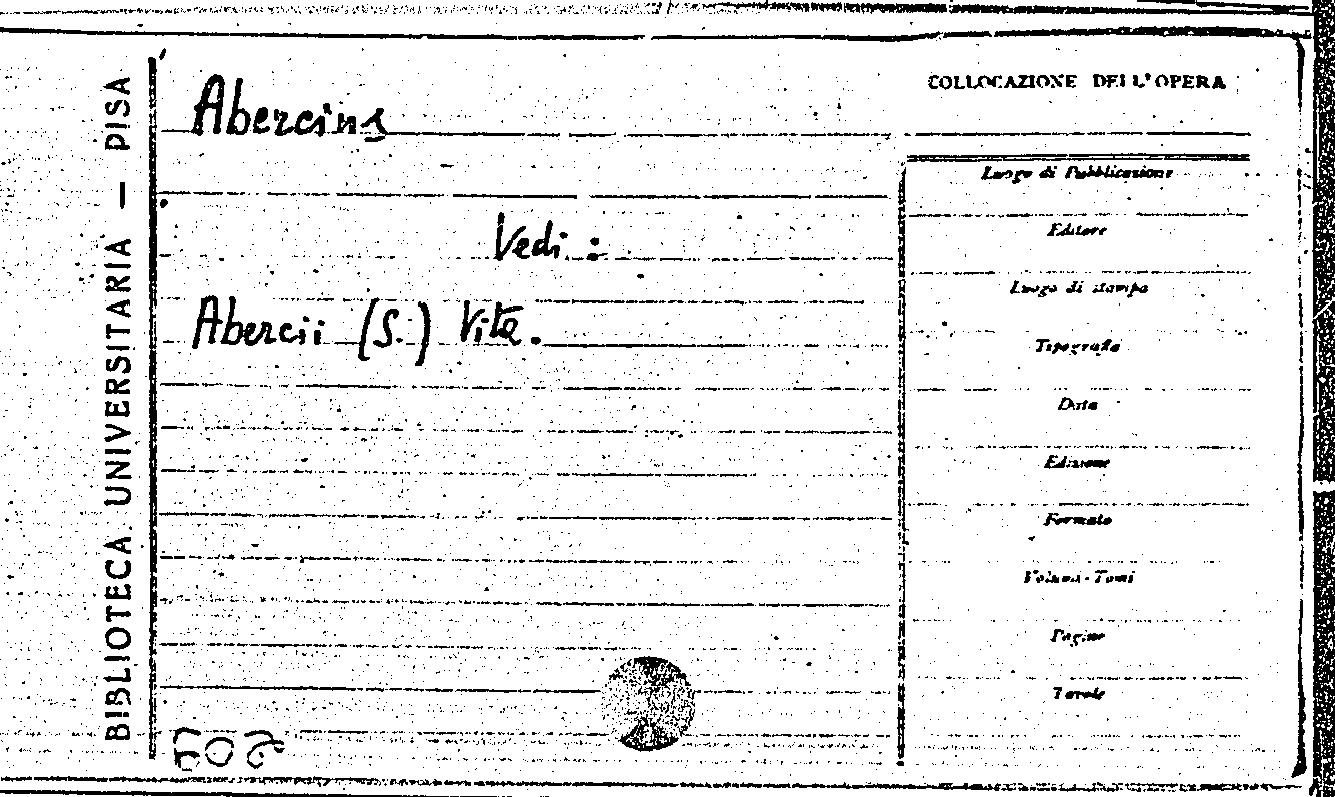 BIBLIOTECA UNIVERSITARIA — PISA
Abercius
Vedi:
Abercii (S.) Vita.
COLLOCAZIONE DELL'OPERA
Luogo di Pubblicazione
Editore
Luogo di stampa
Tipografia
Data
Edizione
Formato
Volumi-Tomi
Pagine
Tavole